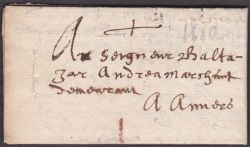 Au Seigneur Balta-
zar Andrea marchant
demeurant
A Anvers